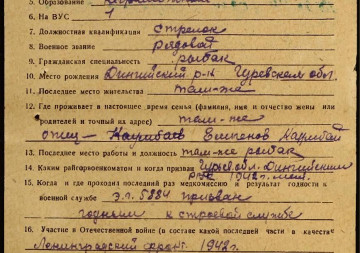 5. Образование
6. На ВУС 1
7. Должностная квалификация стрелок
8. Военное звание рядовой
9. Гражданская специальность рыбак
10. Место рождения р-н Гурьевской обл.
11. Последнее место жительства там-же
12. Где проживает в настоящее время семья (фамилия, имя и отчество жены или
родителей и точный их адрес) там-же
отец —
13. Последнее место работы и должность там-же рыбак
14. Каким райгорвоенкоматом и когда призван Гурьев. обл.
1942г.
15. Когда и где проходил последний раз медкомиссию и результат годности к
военной службе э.г. 5884 признан
годным к строевой службе
16. Участие в Отечественной войне (в составе какой последней части в качестве
Ленинградский фронт 1942г.